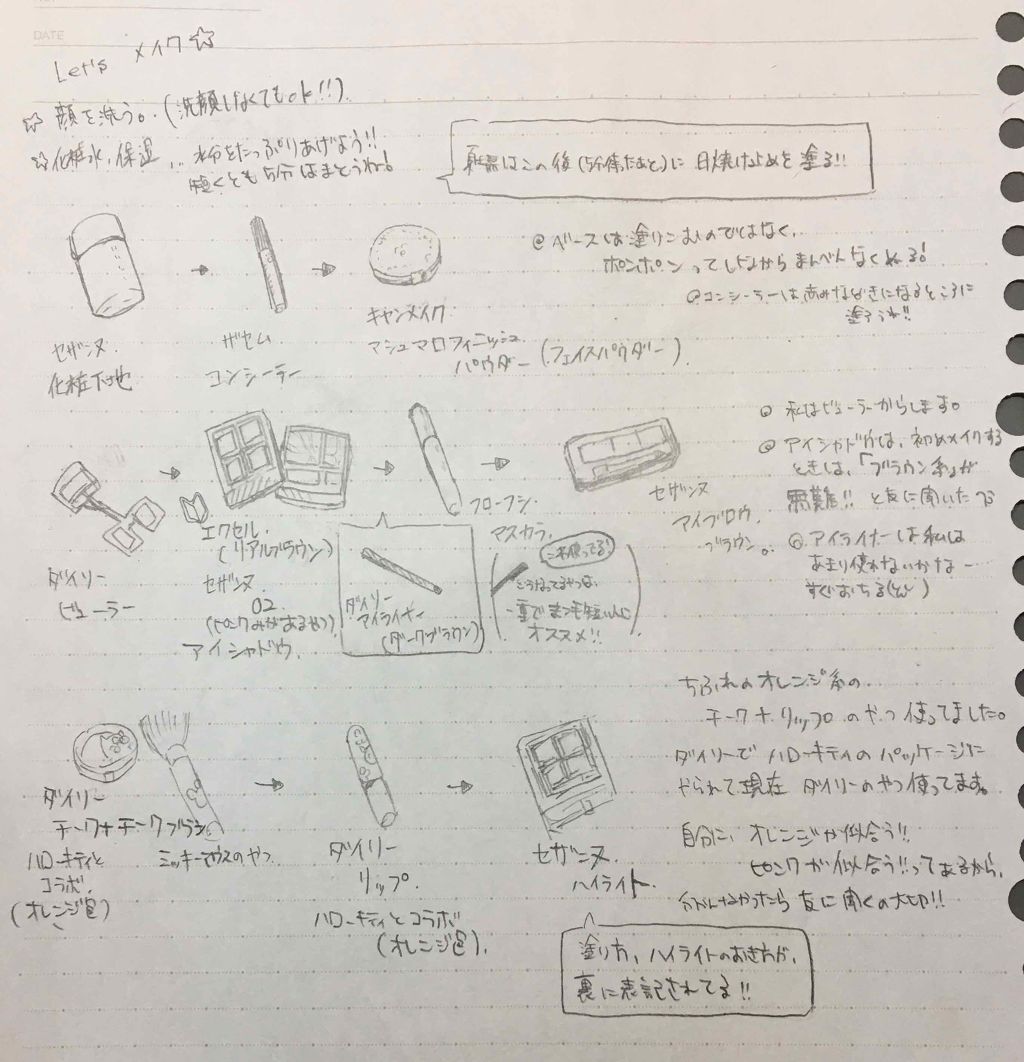 DATE
Let's メイク☆
☆ 顔を洗う。(洗顔しなくてもok!!)
☆化粧水、保湿... 水分をたっぷりあげよう!!
短くとも5分はまとうね!
はこの後(5分待ったあと)に 日焼け止めを塗る!!
@ ベースは塗りこむのではなく、
ポンポンってしながらまんべんなくぬる!
@コンシーラーは赤みなど気になるところに
塗ろうね!!
セザンヌ
化粧下地
ザセム
コンシーラー
キャンメイク
マシュマロフィニッシュ
パウダー (フェイスパウダー)
@ 私はビューラーからします。
@ アイシャドウは、初めメイクする
ときは、「ブラウン系」が
無難!! と友に聞いた
@ アイライナーは私は
あまり使わないかなー
すぐおちる
ダイソー
ビューラー
エクセル
(リアルブラウン)
セザンヌ
02
(ピンクみがあるやつ)
アイシャドウ
ダイソー
アイライナー
(ダークブラウン)
フローフシ
マスカラ
これ使ってる!
こうなってるやつは、
一重でまつ毛短い人に
オススメ!!
セザンヌ
アイブロウ
ブラウン。
ちふれのオレンジ系の
チーク+リップのやつ使ってました。
ダイソーで ハローキティの パッケージに
やられて現在 ダイソーのやつ使ってます。
自分に、オレンジが似合う!!
ピンクが似合う!!ってあるから、
分かんなかったら友に聞くの大切!!
ダイソー
チーク+チークブラシ
ハローキティと
コラボ
(オレンジ色)
ミッキーマウスのやつ
ダイソー
リップ
ハローキティとコラボ
(オレンジ色)
セザンヌ
ハイライト
塗り方、ハイライトのおき方が、
裏に表記されてる!!